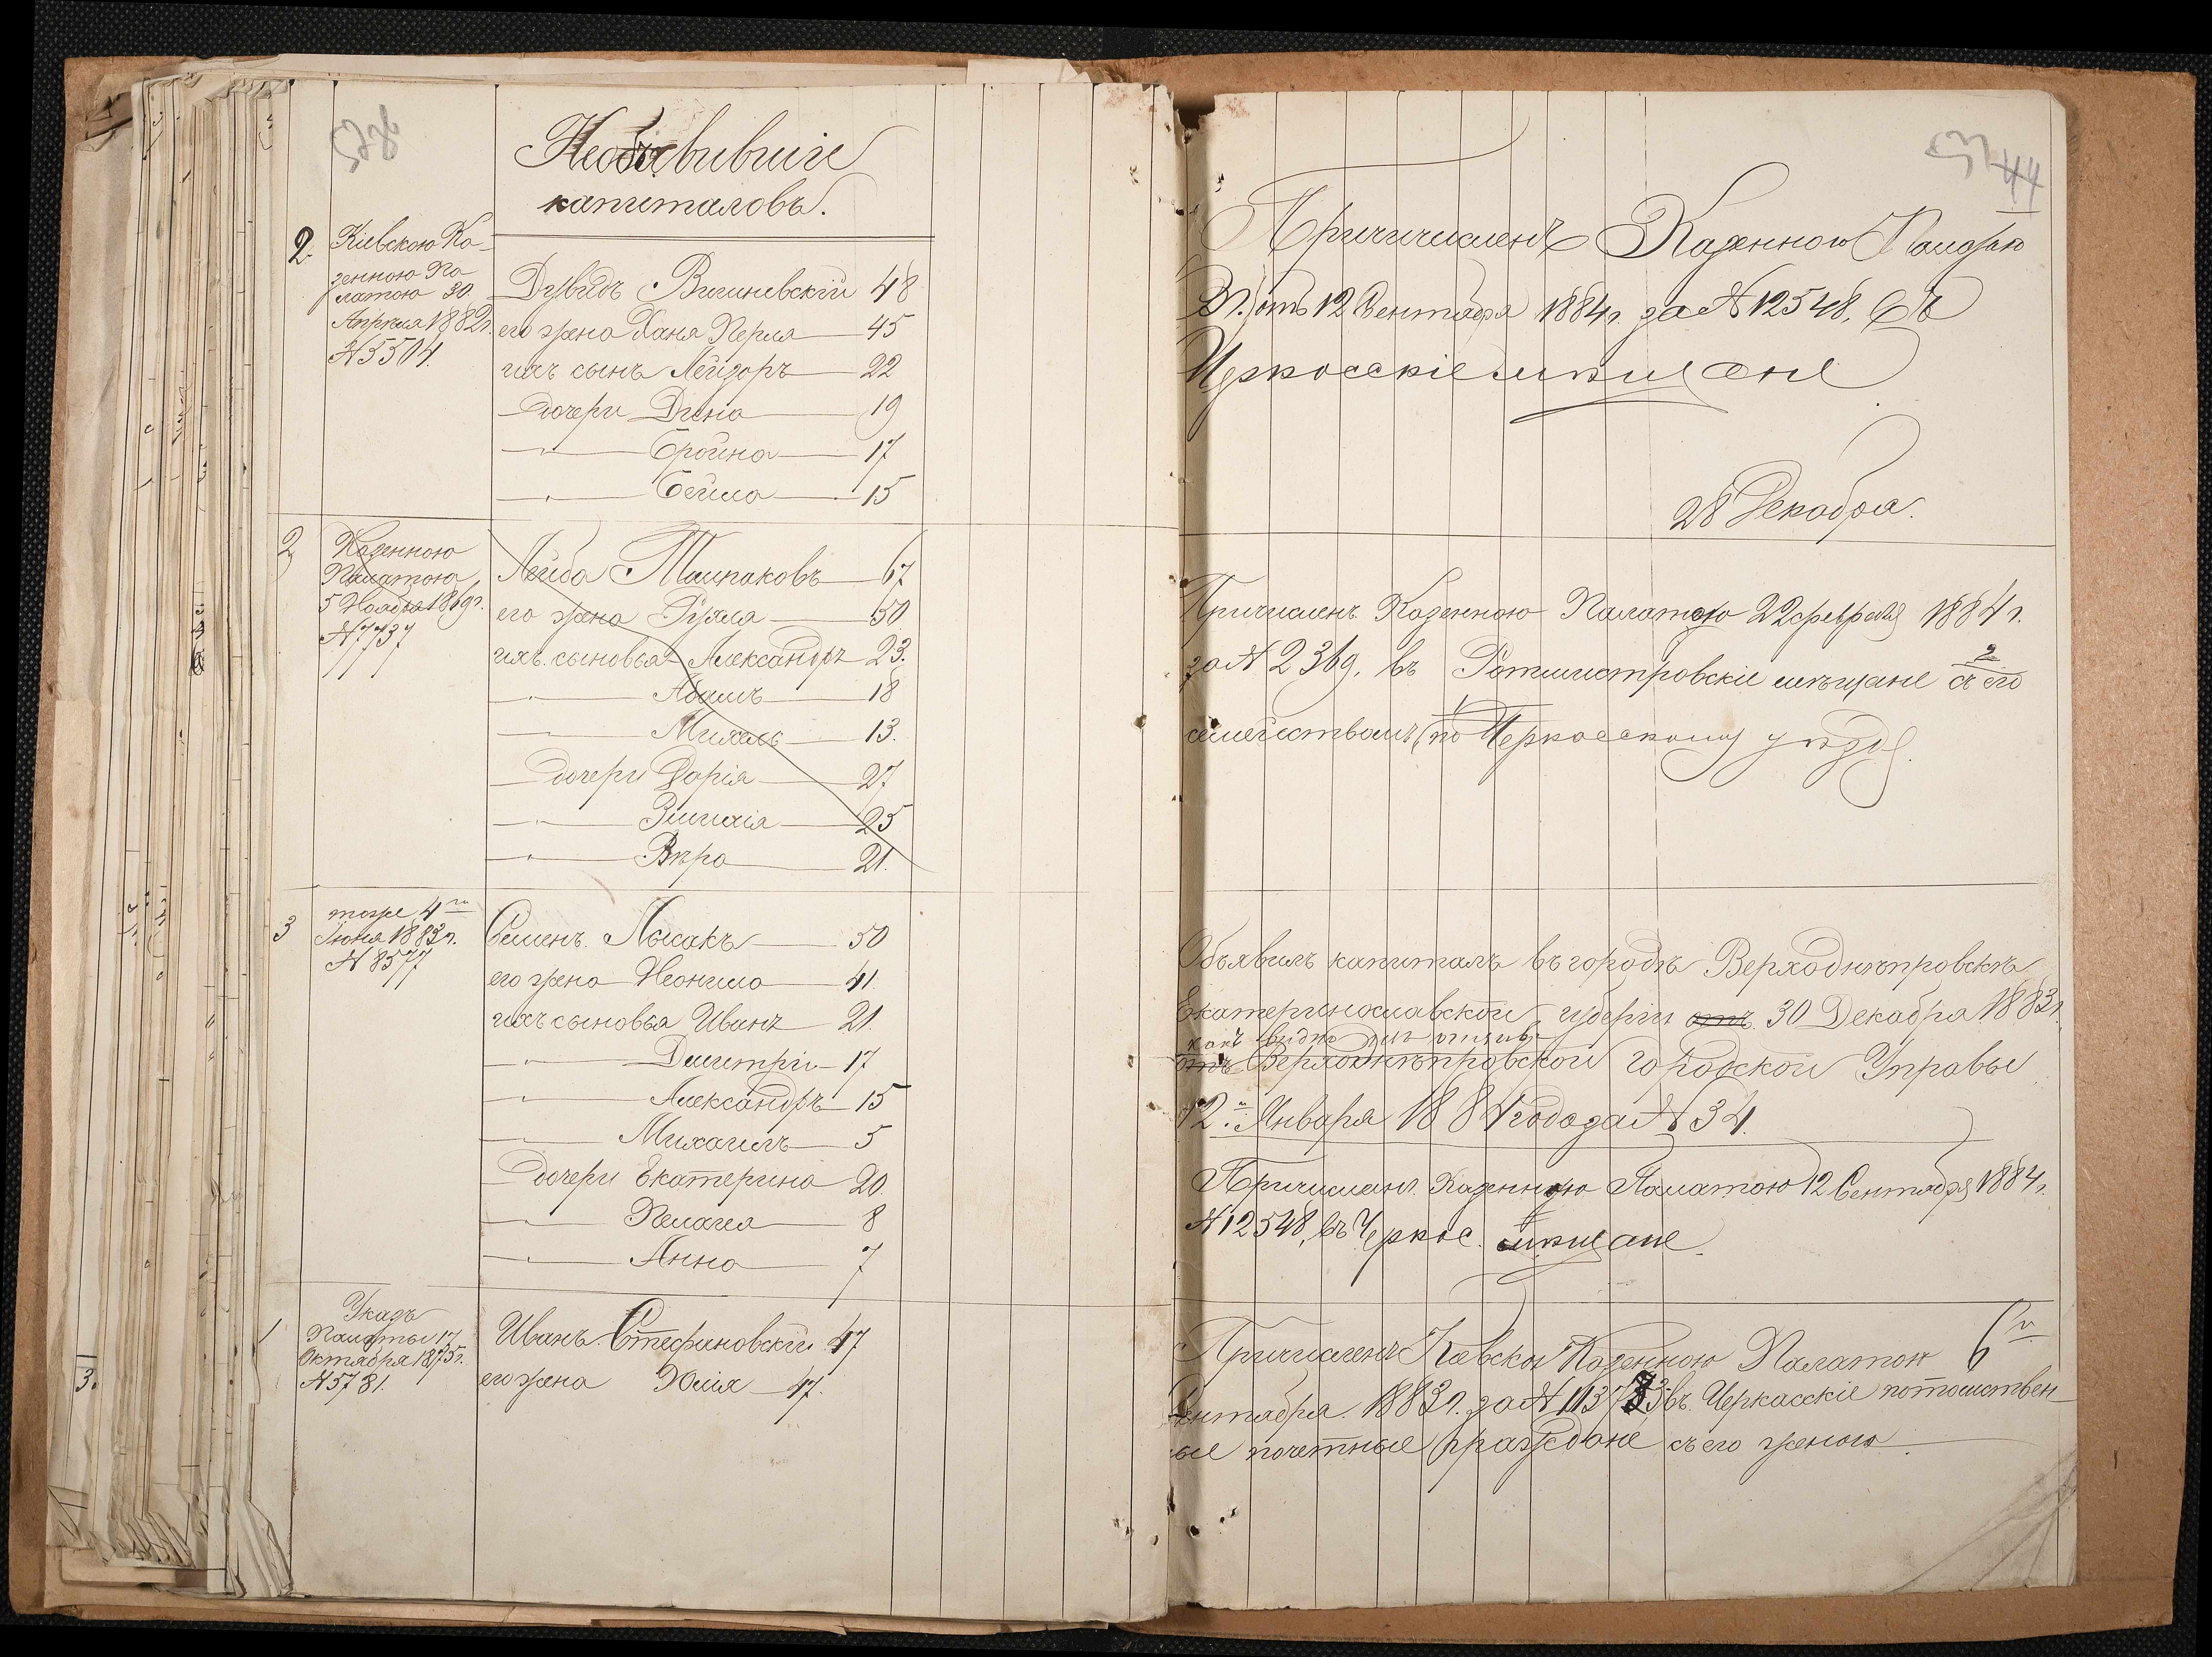 Необъявившіе
капиталовъ.
2. Кіевскою Ка-
зенною Па
латою 30
Апрѣля 1882г.
№ 5504.
Дувидъ Вишневскій 48
его жена Хана Перла 45
ихъ сынъ Лейзоръ 22
дочери Дина 19
" Бройна 17
" Бейла 15
2 Казенною
Палатою
5 Ноября 1869г.
№ 7737
Лейба Толпаковъ 67
его жена 50
ихъ сыновья Александръ 23.
" 18
" Михель 13.
дочери Дарія 27
" 25
" Вѣра 21.
3 тоже 4го
Іюня 1883г.
№ 8577
Семенъ Лысакъ 50
его жена Неонила 41.
ихъ сыновья Иванъ 21.
" Дмитрій 17
" Александръ 15
" Михаилъ 5
дочери Екатерина 20.
" Пелагея 8
" Анна 7
1 Указъ
Палаты 17
Октября 1875г.
№ 5781.
Иванъ Стефановскій 47
его жена Юлія 47.
3.
44
Причисленъ Казенною Палатою
отъ 12 Сентября 1884г. за № 12548, въ
Черкасскіе мѣщане
28 Декабря.
Причисленъ Казенною Палатою 22 февраля 1884г.
за № 2369, въ Ротмистровскіе мѣщане съ его
семействомъ, по Черкасскому уѣзду.
Объявилъ капиталъ въ городѣ Верходнѣпровскѣ
Екатеринославской губерніи отъ 30 Декабря 1883г.
какъ видно изъ отзыва
отъ Верходнѣпровской Городской Управы
12го Января 1884 года за № 34.
Причисленъ Казенною Палатою 12 Сентября 1884г.
№ 12548, въ Черкас. мѣщане.
Причисленъ Кіевской Казенною Палатою 6го
Сентября 1883г. за № въ Черкасскіе потомствен-
ые почетные граждане съ его женою.